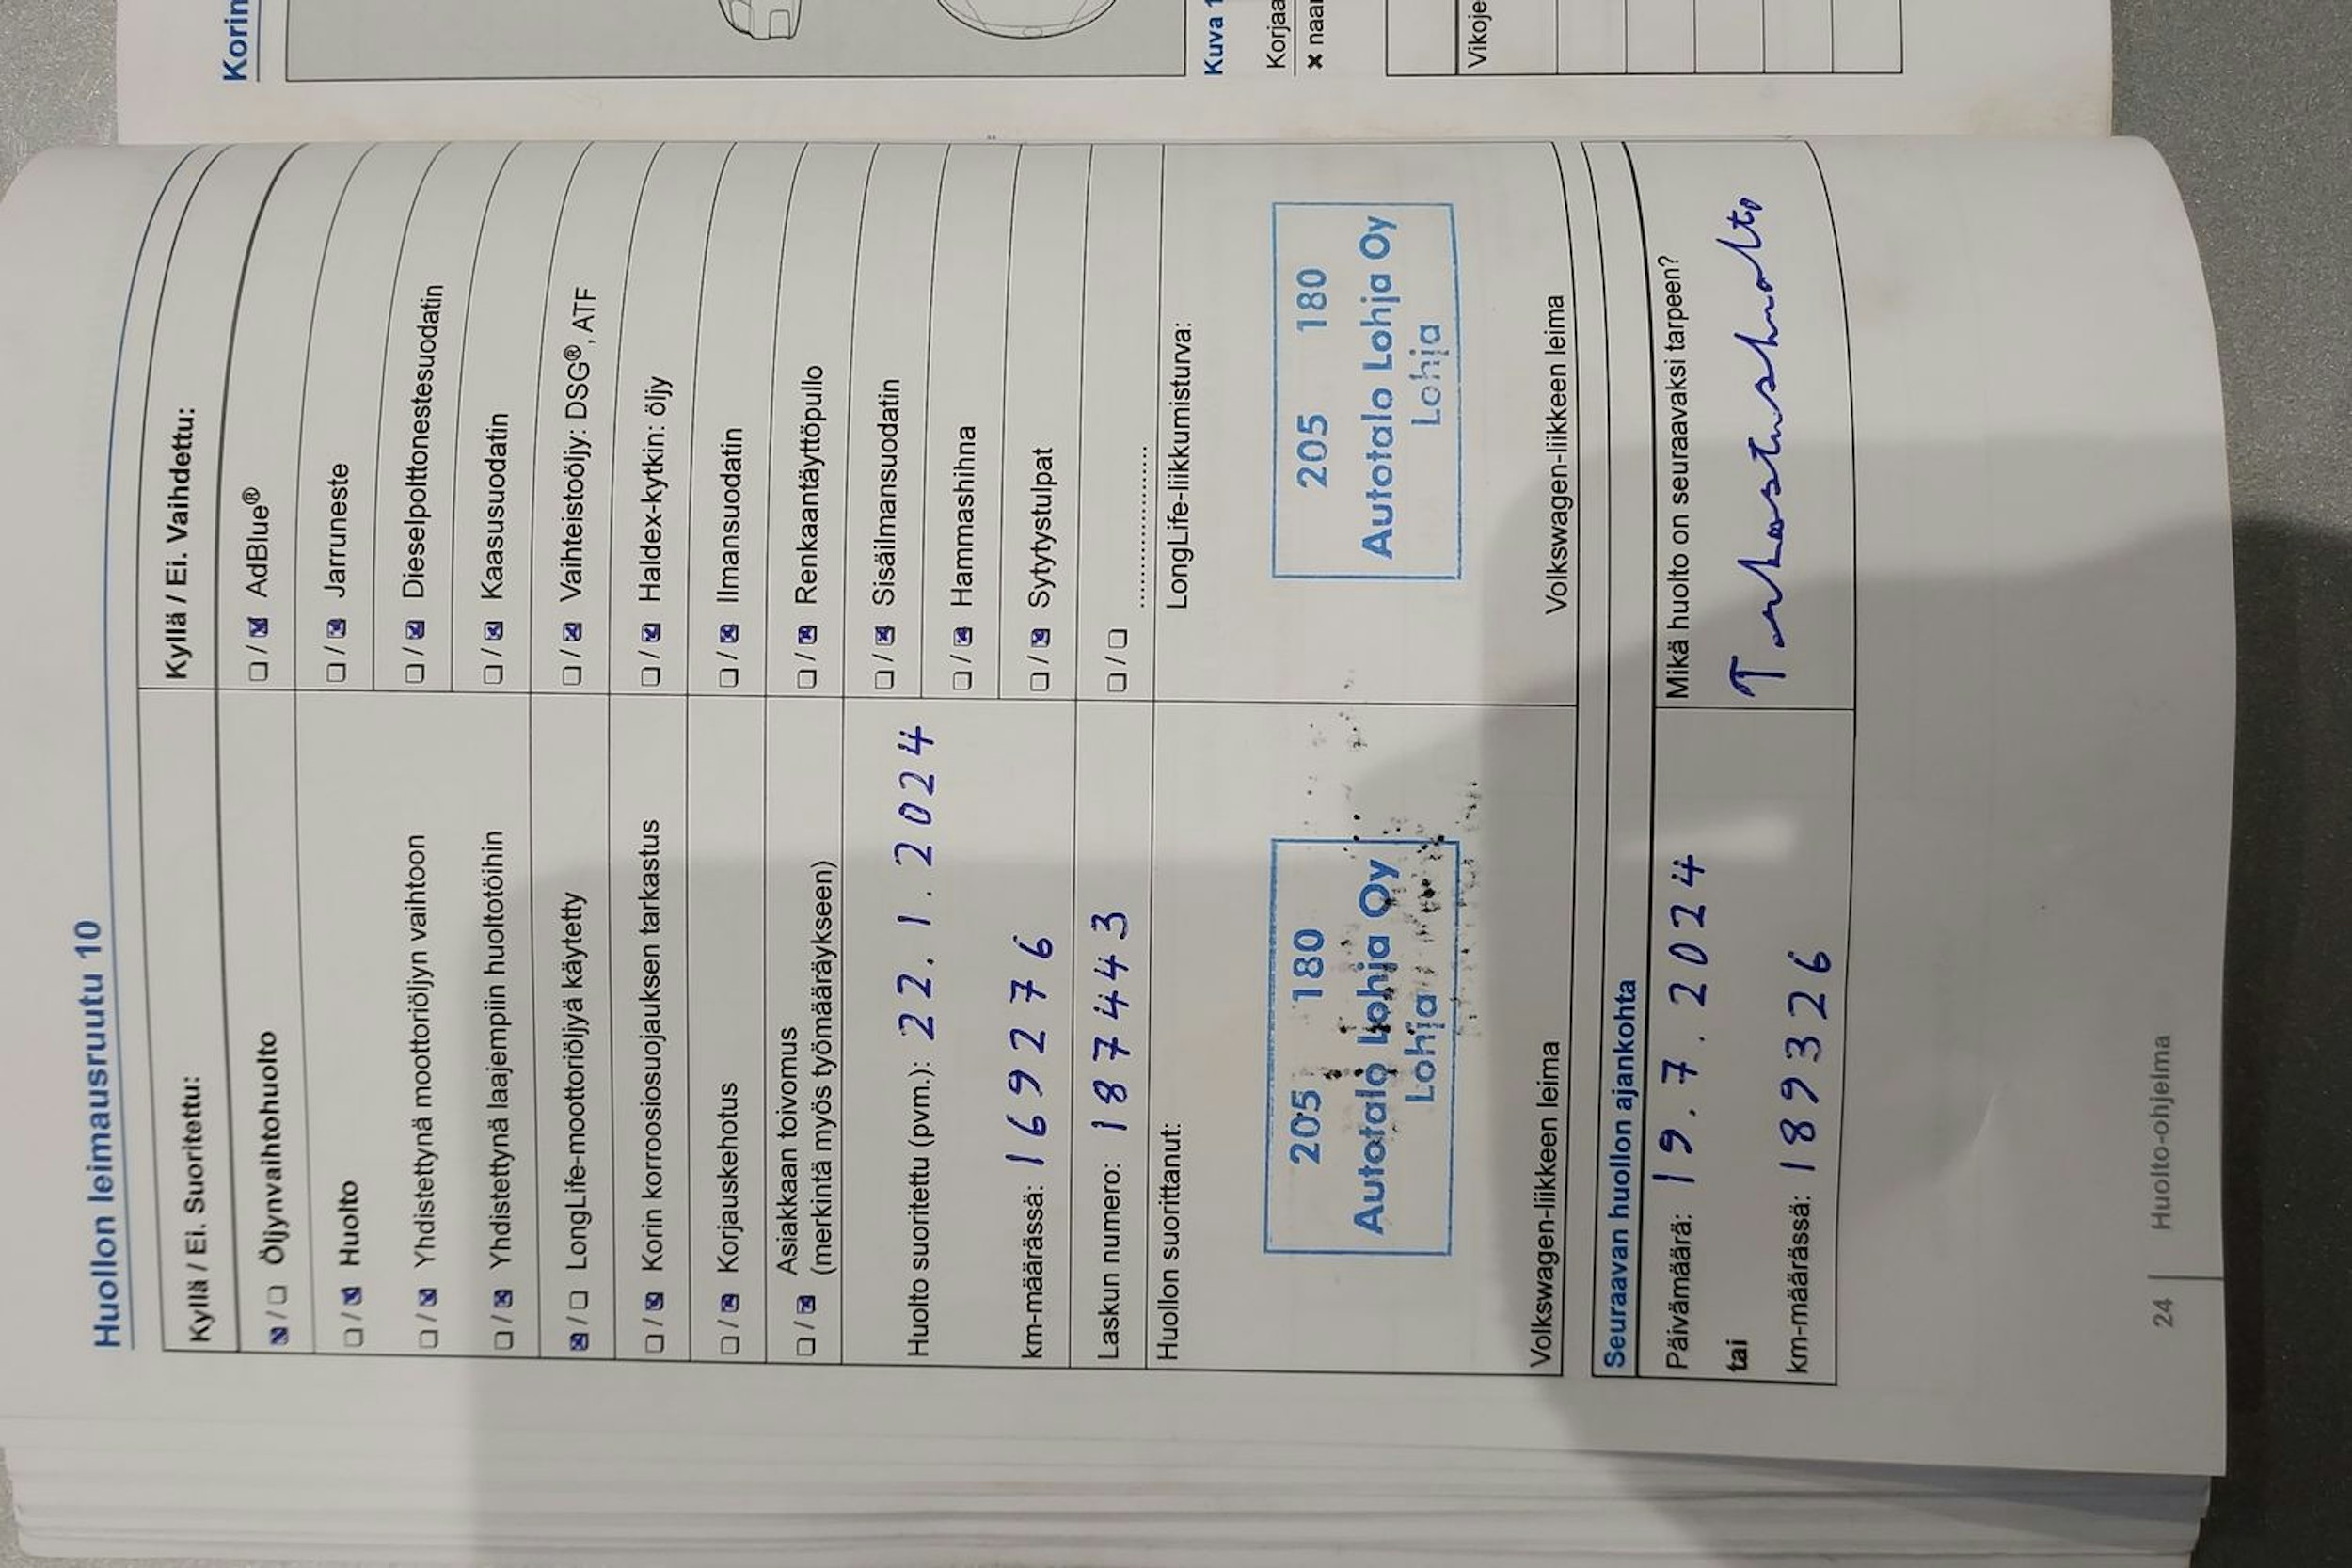 Huollon leimausruutu 10
Kyllä / Ei. Suoritettu:
Öljynvaihtohuolto
Huolto
Yhdistettynä moottoriöljyn vaihtoon
Yhdistettynä laajempiin huoltotöihin
LongLife-moottoriöljyä käytetty
Korin korroosiosuojauksen tarkastus
Korjauskehotus
Asiakkaan toivomus
(merkintä myös työmääräykseen)
Huolto suoritettu (pvm.): 22.1.2024
km-määrässä: 169276
Laskun numero: 187443
Huollon suorittanut:
205 180
Autotalo Lohja Oy
Lohja
Volkswagen-liikkeen leima
Kyllä / Ei. Vaihdettu:
AdBlue®
Jarruneste
Dieselpolttonestesuodatin
Kaasusuodatin
Vaihteistoöljy: DSG®, ATF
Haldex-kytkin: öljy
Ilmansuodatin
Renkaantäyttöpullo
Sisäilmansuodatin
Hammashihna
Sytytystulpat
LongLife-liikkumisturva:
205 180
Autotalo Lohja Oy
Lohja
Volkswagen-liikkeen leima
Seuraavan huollon ajankohta
Päivämäärä: 19.7.2024
tai
km-määrässä: 189326
Mikä huolto on seuraavaksi tarpeen?
Tarkastushuolto
24 Huolto-ohjelma
Korin
Kuva 1
Korjaa
Vikoje